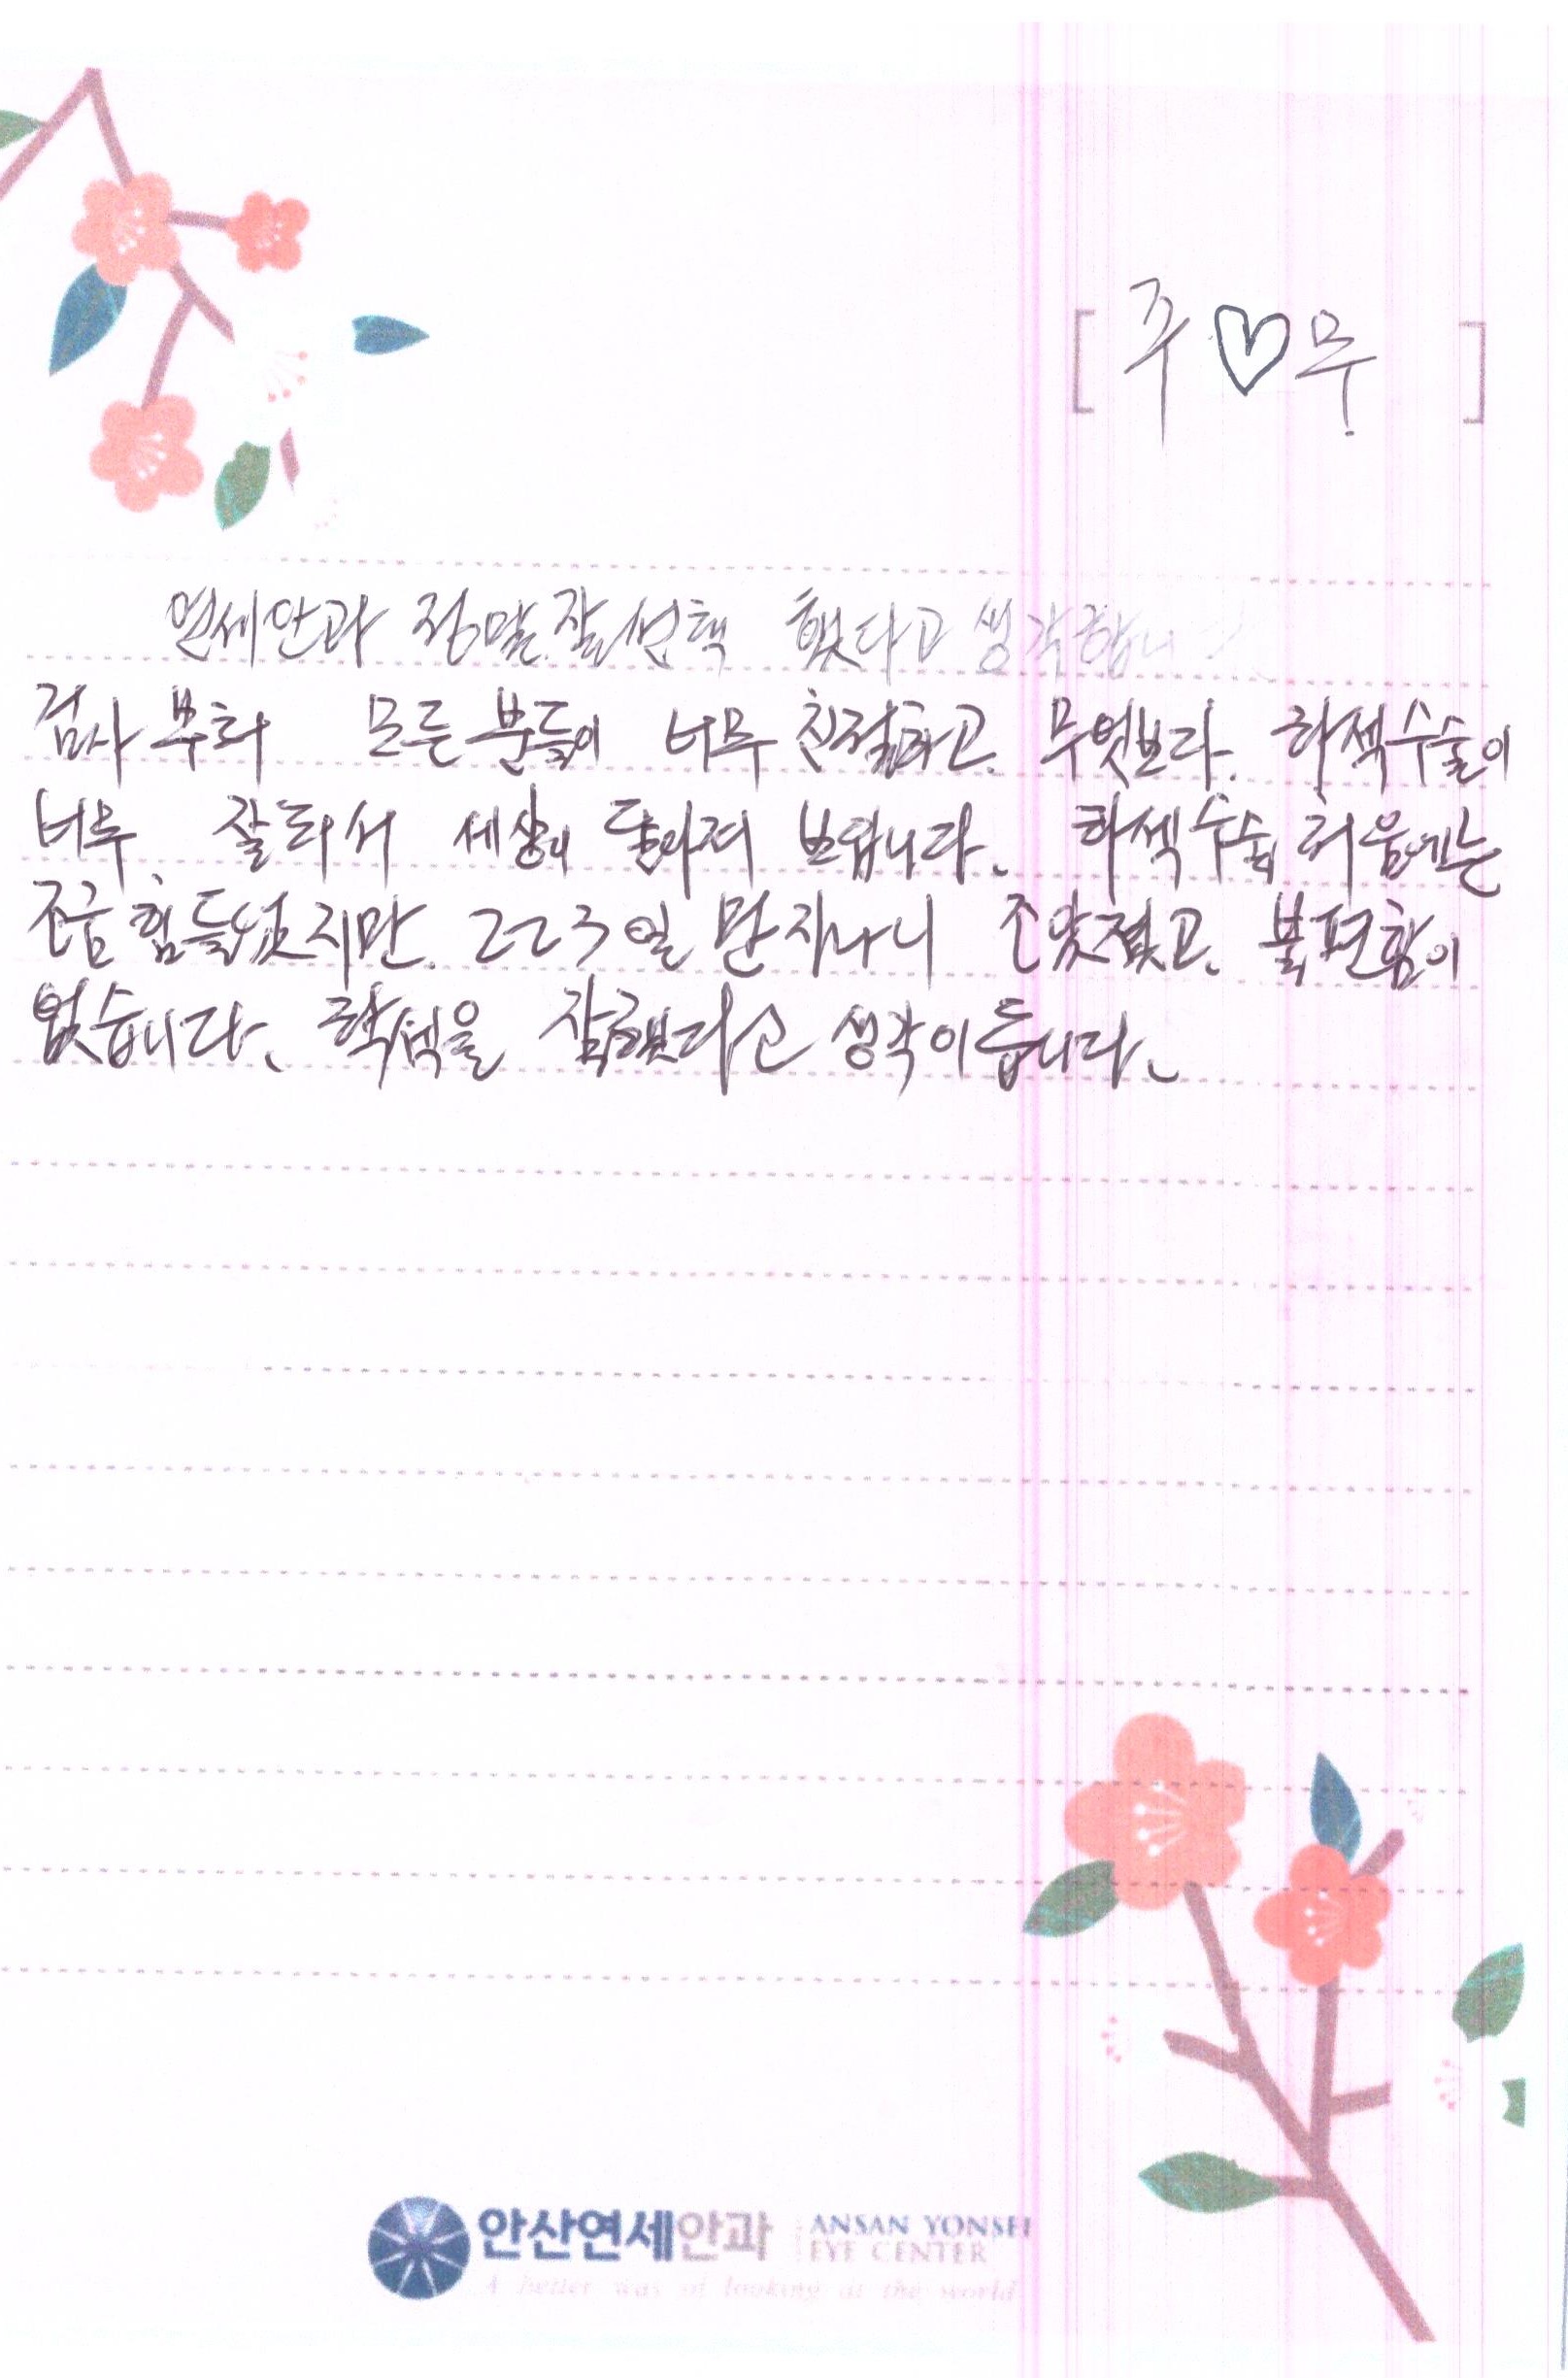 [ 주♡무 ]
연세안과 정말 잘 선택 했다고 생각합니다
검사 부터 모든 분들이 너무 친절하고. 무엇보다. 라섹수술이
너무. 잘되서 세상이 달라져 보입니다. 라섹수술 처음에는
조금 힘들었지만. 2~3일 만 지나니 좋았졌고. 불편함이
없습니다. 라섹을 잘했다고 생각이듭니다.
안산연세안과 ANSAN YONSEI
EYE CENTER
A better way of looking at the world